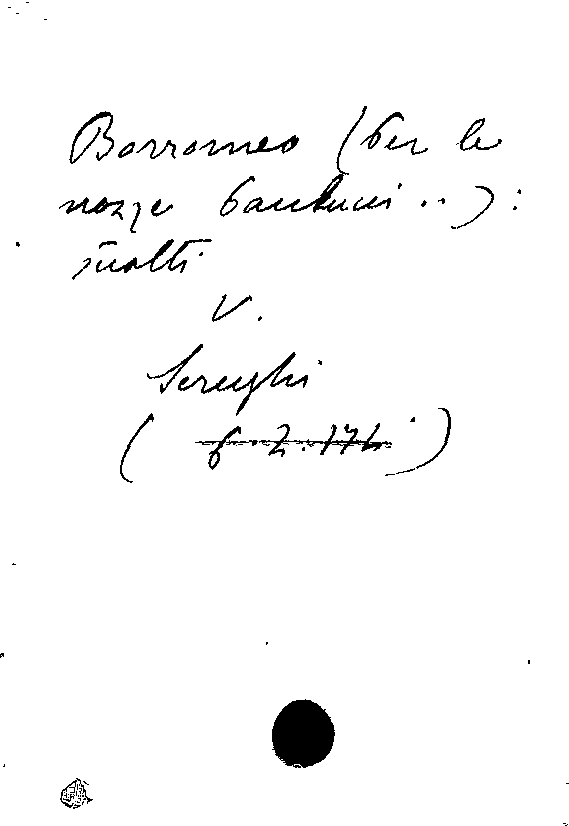 Borromeo (Per le
nozze Gantucci ..):
scelti
V.
Sereghi
( 6.2.174 )